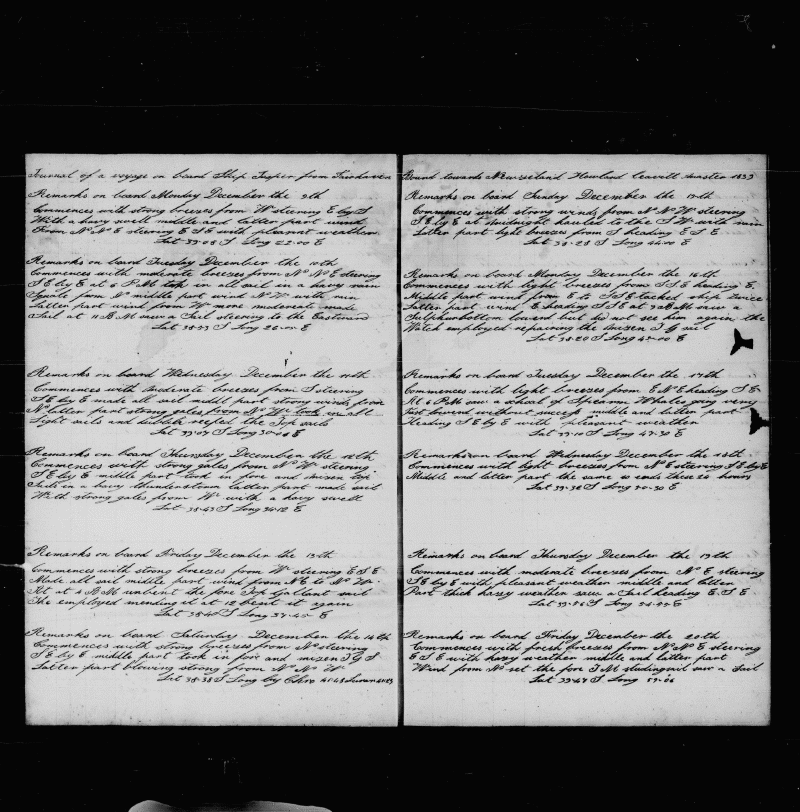 Journal of a voyage on board Ship Jasper from Fairhaven
Remarks on board Monday December the 9th
Commences with strong breezes from W steering E by S
With a havy swell middle and latter part wind
From N N E steering E S E with plearsent weather
Lat 37-08 S Long 22-00 E
Remarks on board Tuesday December the 10th
Commences with moderate breezes from N N E steering
S E by E at 6 P M took in all sail in a havy rain
Squale from N middle part wind N W with rain
Latter part wind from W more moderate made
Sail at 11 A M saw a Sail steering to the Eastward
Lat 38-33 S Long 26-00 E
Remarks on board Wednesday December the 11th
Commences with moderate breezes from S steering
S E by E made all sail middl part strong winds from
N latter part strong gales from N W took in all
Light sails and dubble reefed the Top sails
Lat 39-07 S Long 30-06 E
Remarks on board Thursday December the 12th
Commences with strong gales from N W steering
S E by E middle part took in fore and mizen top
Sails in a havy thunderstorm latter part made sail
With strong gales from W with a havy swell
Lat 38-43 S Long 34-12 E
Remarks on board Friday December the 13th
Commences with strong breezes from W steering E S E
Made all sail middle part wind from N E to N W
At 4 A M unbent the fore Top Gallant sail
The employed mending it at 12 bent it again
Lat 38-41 S Long 37-45 E
Remarks on board Saturday December the 14th
Commences with strong breezes from N steering
S E by E middle part took in fore and mizen T G S
Latter part blowing strong from N N W
Lat 38-38 S Long by Chro 41-48
Bound towards New zeland Howland Leavitt Master 1833
Remarks on board Sunday December the 15th
Commences with strong winds from N N W steering
S E by E at midnight hauled to the S W with rain
Latter part light breezes from S heading E S E
Lat 38-28 S Long 44-00 E
Remarks on board Monday December the 16th
Commences with light breezes from S S E heading E
Middle part wind from E to S E tacked ship twice
Latter part wind E heading S S E at 9 A M saw a
Sulpherbottom lowerd but did not see him again the
Watch employed repairing the mizen T G sail
Lat 38-20 S Long 45-00 E
Remarks on board Tuesday December the 17th
Commences with light breezes from E N E heading S E
At 6 P M saw a school of Spearm Whales going very
Fast lowerd without success middle and latter part
Heading S E by E with pleasent weather
Lat 39-10 S Long 47-30 E
Remarks on board Wednesday December the 18th
Commences with light breezes from N E steering S E by E
Middle and latter part the same so ends these 24 hours
Lat 39-36 S Long 50-30 E
Remarks on board Thursday December the 19th
Commences with moderate breezes from N E steering
S E by E with pleasent weather middle and latter
Part thick hazzy weather saw a Sail heading E S E
Lat 39-56 S Long 54-22 E
Remarks on board Friday December the 20th
Commences with fresh breezes from N N E steering
E S E with hazy weather middle and latter part
Wind from N set the fore T M studingsail saw a Sail
Lat 39-47 S Long 59-06